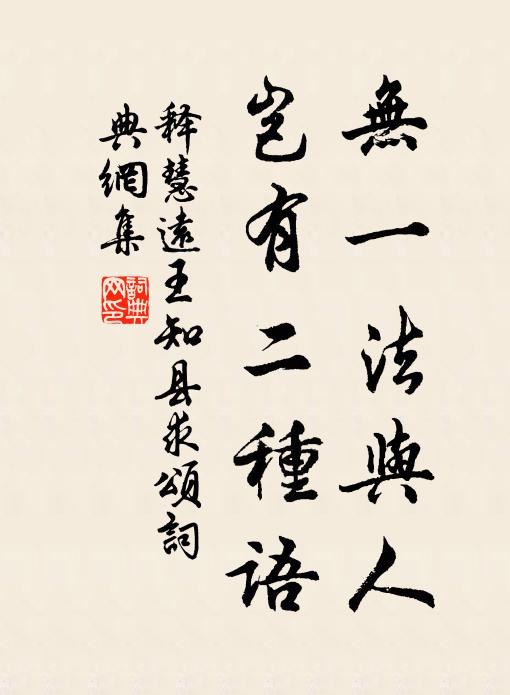 無一法與人
豈有二種语
释慧遠王知县求頌詞
典網集
詞典网印